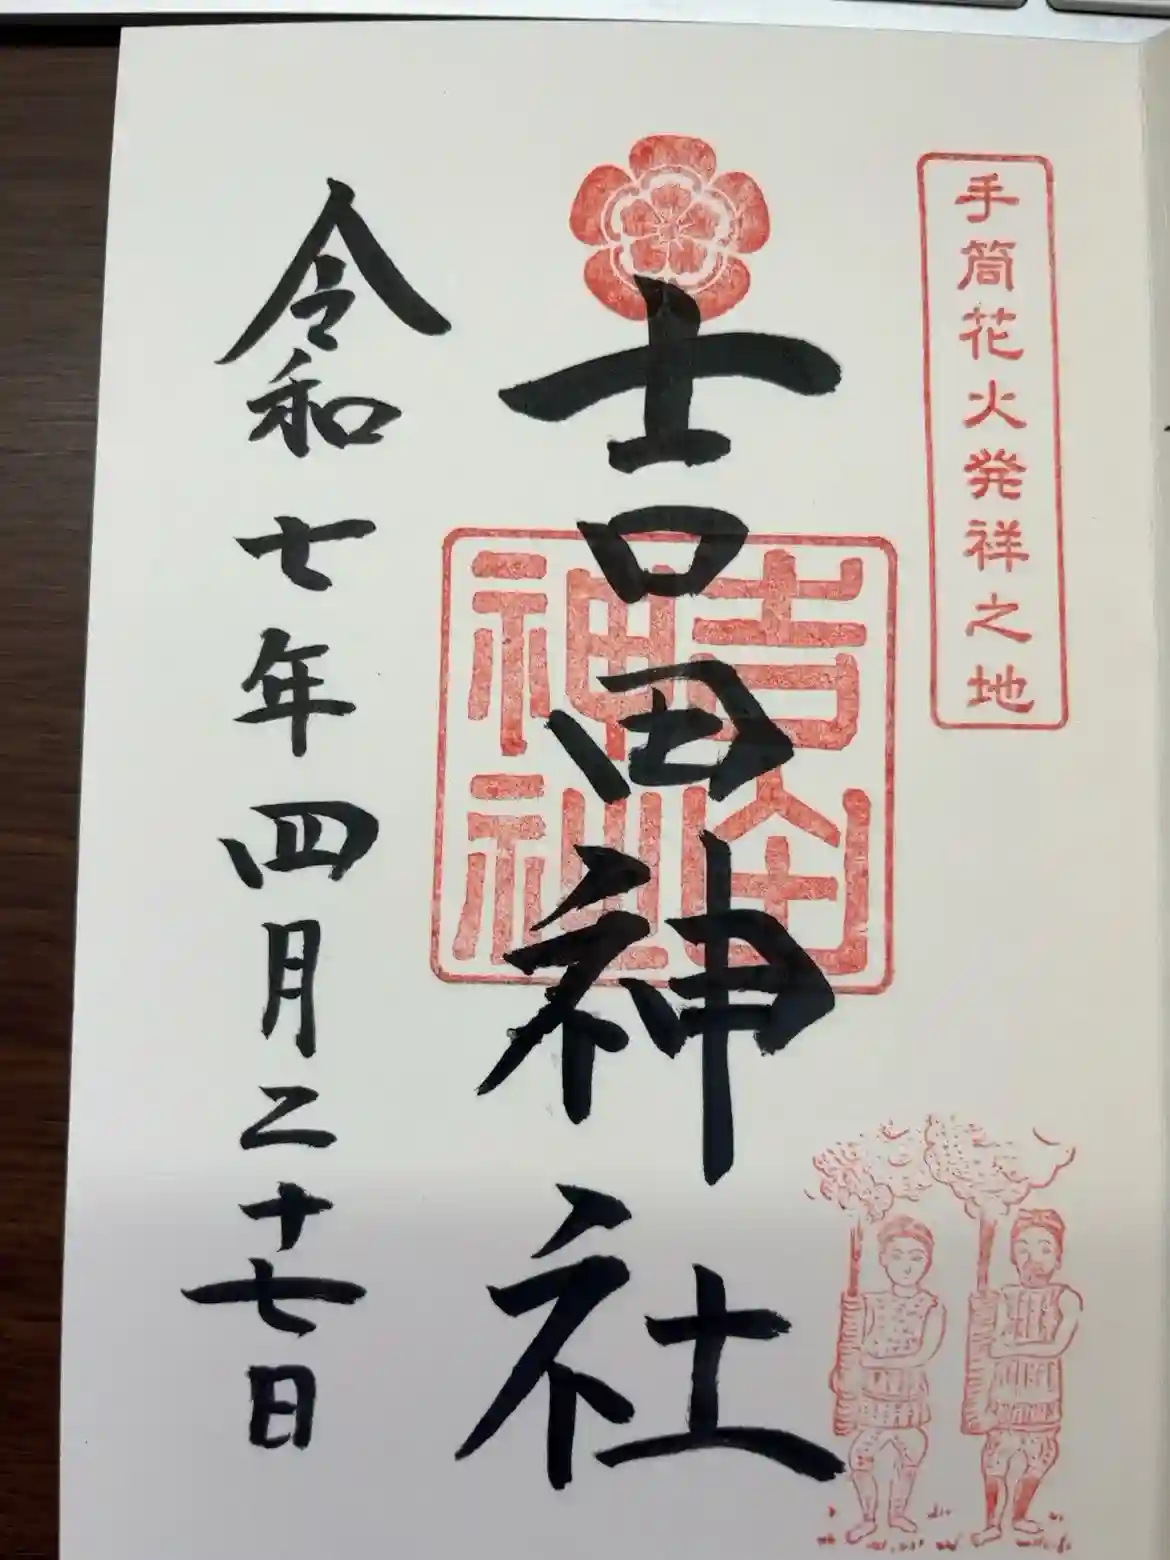 手筒花火発祥之地
吉田神社
吉田神社
令和七年四月二十七日